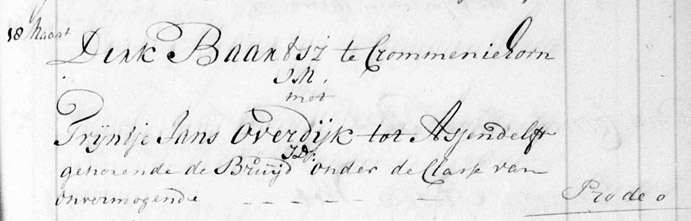 18 Maart
Dirk Baartsz te Crommeniehorn
J.M.
met
Trijntje Jans Overdijk tot Assendelft
J.D.
gehorende de Bruijd onder de Classe van
onvermogende - - - - - Pro deo